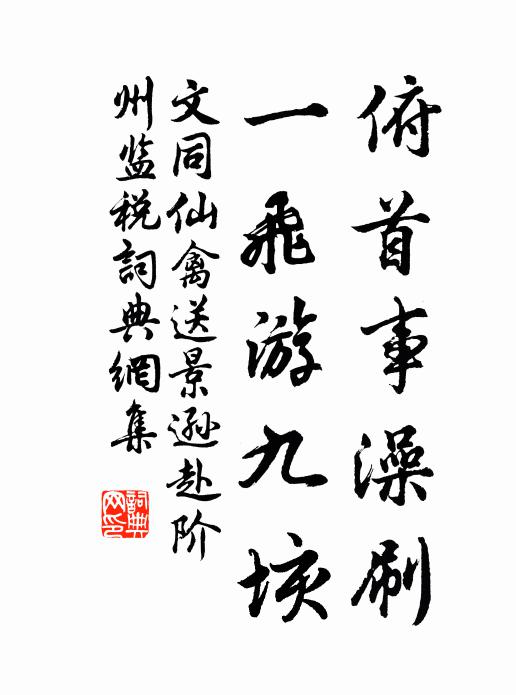 俯首事澡刷
一飛游九垓
文同仙禽送景遜赴阶
州监税詞典網集
詞典网印